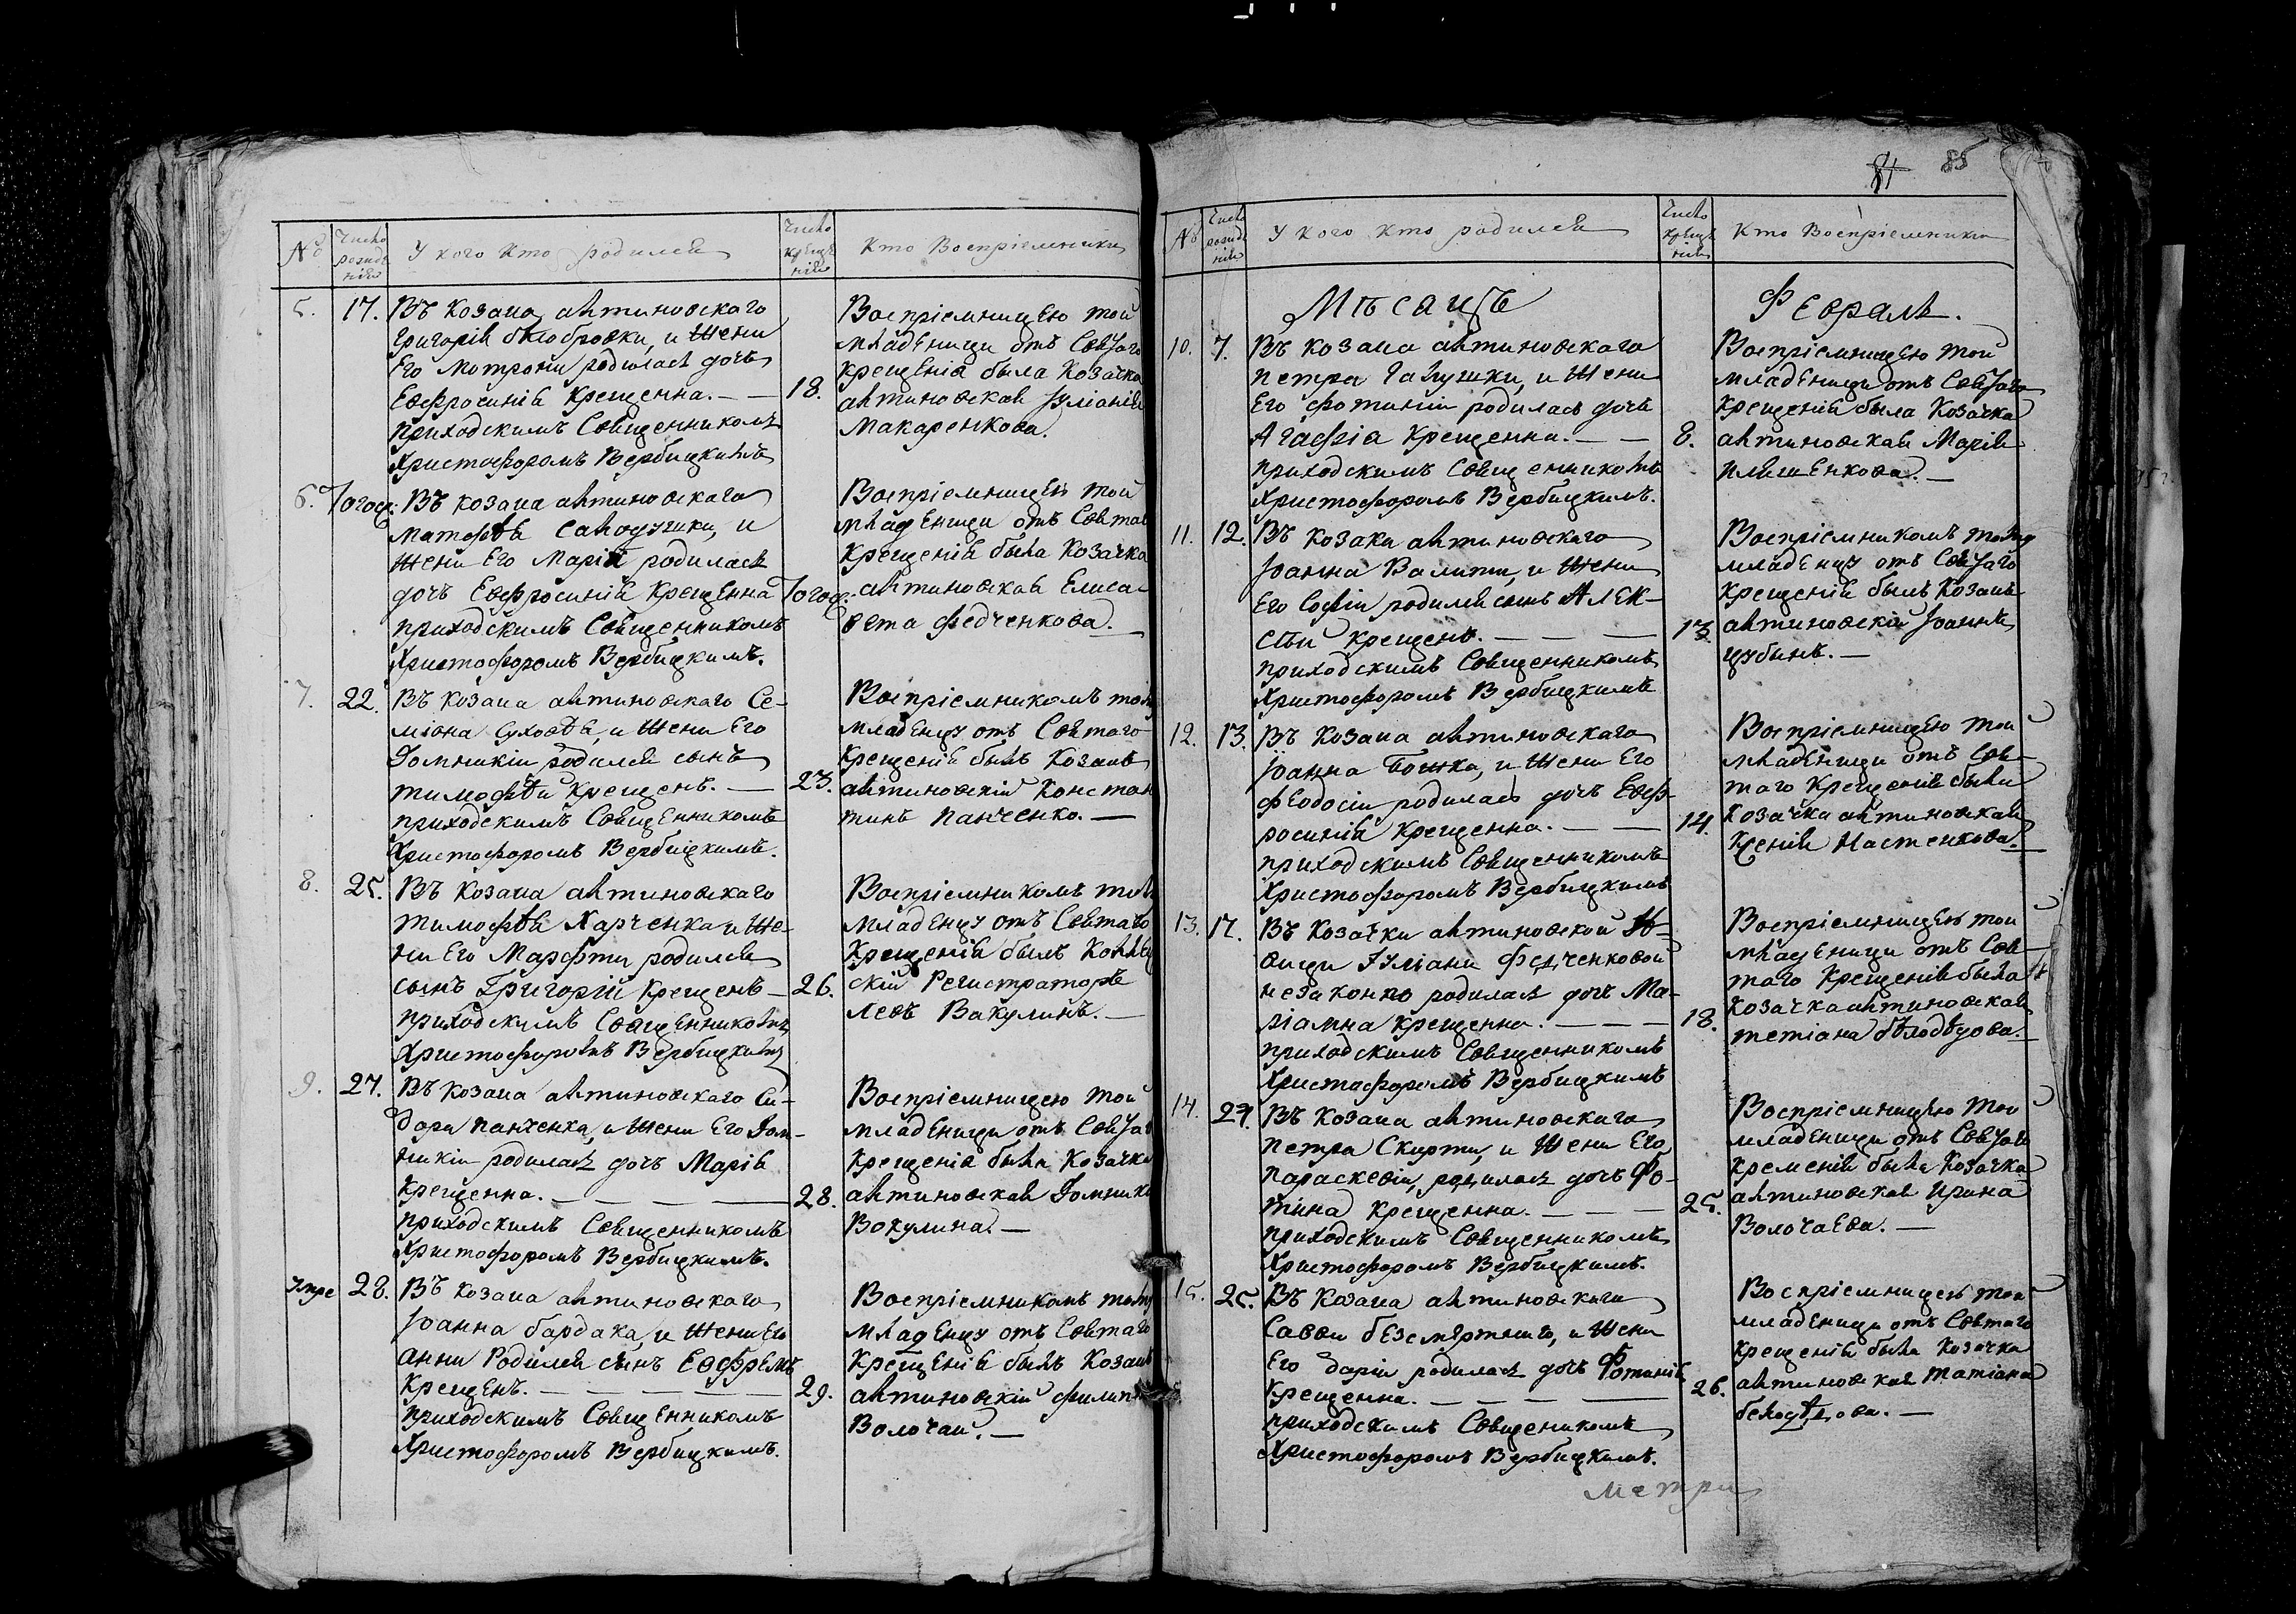 №
Число рожденія
У кого кто родился
Число крещенія
Кто Воспріемники
5. 17. Въ козака антиновскаго
Григорія бѣлобровки, и жени
Его мотрони родилась дочь
Евфросинія крещенна. — —
приходскимъ Священникомъ
Христофоромъ Вербицкимъ
18.
Воспріемницею той
младеници отъ Святаго
крещенія была козачка
антиновская Іуліанія
Макаренкова.
6. Тогож. Въ козака антиновскаго
матфѣя саподушки, и
жени Его Маріи родилась
дочь Евфросинія крещенна
приходскимъ Священникомъ
Христофоромъ Вербицкимъ.
Тогож.
Воспріемницею той
младеници отъ Святаго
крещенія была козачка
антиновская Елиса-
вета Федченкова.
7. 22. Въ козака антиновскаго Се-
міона Суховѣя, и жени Его
Домникіи родился сынъ
тимофѣй крещенъ. —
приходскимъ Священникомъ
Христофоромъ Вербицкимъ.
23.
Воспріемникомъ тому
младенцу отъ Святаго
крещенія былъ козакъ
антиновскій Констан
тинъ Панченко. —
8. 25. Въ козака антиновскаго
тимофѣя Харченка и же-
ни Его Марфти родился
сынъ Григорій крещенъ —
приходскимъ Священникомъ
Христофоромъ Вербицкимъ
26.
Воспріемникомъ тому
младенцу отъ Святаго
крещенія былъ Коллеж
скій Регистраторъ
Левъ Вакулинъ. —
9. 27. Въ козака антиновскаго Си-
дора Панченка, и жени Его Дом-
никіи родилась дочь Марія
крещенна. — — — —
приходскимъ Священникомъ
Христофоромъ Вербицкимъ.
28.
Воспріемницею той
младеници отъ Святаго
крещенія была козачка
антиновская Домникія
Вокулина. —
28. Въ козака антиновскаго
Іоанна бардака, и жени Его
анни Родился сынъ Евфремъ
крещенъ. — — — — —
приходскимъ Священникомъ
Христофоромъ Вербицкимъ.
29.
Воспріемникомъ тому
младенцу отъ Святаго
крещенія былъ козакъ
антиновскій филиппъ
Волочай. —
84 85
№
Число рожденія
У кого кто родился
Число крещенія
Кто Воспріемники
Мѣсяцъ Февраль.
10. 7. Въ козака антиновскаго
петра Галушки, и жени
Его фотиніи родилась дочь
Агафіа крещенна. — —
приходскимъ Священникомъ
Христофоромъ Вербицкимъ.
8.
Воспріемницею той
младеници отъ Святаго
крещенія была козачка
антиновская Марія
плишенкова. —
11. 12. Въ козака антиновскаго
Іоанна Валити, и жени
Его Софіи родился сынъ Алек-
сѣй крещенъ. — — —
приходскимъ Священникомъ
Христофоромъ Вербицкимъ
13.
Воспріемникомъ тому
младенцу отъ Святаго
крещенія былъ козакъ
антиновскій Іоаннъ
цубинъ. —
12. 13. Въ козака антиновскаго
Іоанна Божка, и жени Его
феодосіи родилась дочь Евф-
росинія крещенна. — —
приходскимъ Священникомъ
Христофоромъ Вербицкимъ
14.
Воспріемницею той
младеници отъ Свя-
таго крещенія была
козачка антиновская
Ксенія Настенкова.
13. 17. Въ козачки антиновской
вици Іуліани Федченковой
незаконно родилась дочь Ма-
ріамна крещенна. — — —
приходскимъ Священникомъ
Христофоромъ Вербицкимъ
18.
Воспріемницею той
младеници отъ Свя-
таго крещенія была
козачка антиновская
тетіана бѣлодѣдова.
14. 24. Въ козака антиновскаго
петра Скирти, и жени Его
параскевіи, родилась дочь Фо-
тина крещенна. — — —
приходскимъ Священникомъ
Христофоромъ Вербицкимъ.
25.
Воспріемницею той
младеници отъ Святаго
кременія была козачка
антиновская Ирина
Волочаева. —
15. 25. Въ козака антиновскаго
Савви безсмертнаго, и жени
Его дарiи родилась дочь Фотинія
крещенна. — — — —
приходскимъ Священикомъ
Христофоромъ Вербицкимъ.
26.
Воспріемницею той
младеници отъ Святаго
крещенія была козачка
антиновская татіана
белодѣдова. —
Метри